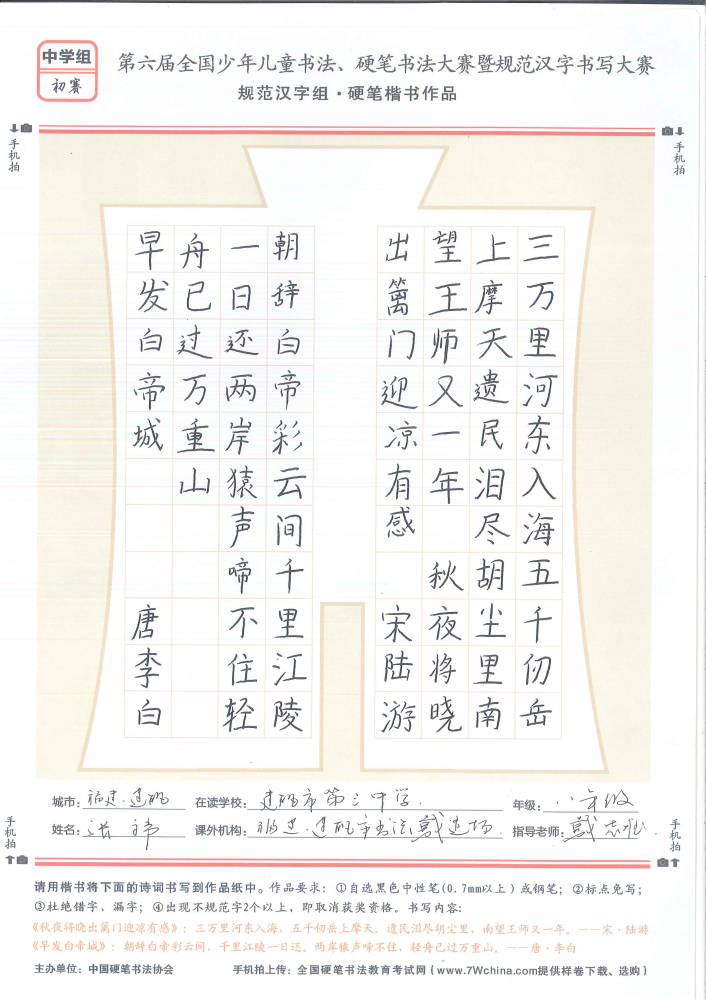 中学组
初赛
第六届全国少年儿童书法、硬笔书法大赛暨规范汉字书写大赛
规范汉字组·硬笔楷书作品
手机拍
手机拍
三万里河东入海五千仞岳
上摩天遗民泪尽胡尘里南
望王师又一年 秋夜将晓
出篱门迎凉有感 宋陆游
朝辞白帝彩云间千里江陵
一日还两岸猿声啼不住轻
舟已过万重山
早发白帝城 唐李白
城市：福建.建瓯 在读学校：建瓯市第三中学. 年级：八年级
姓名：张 课外机构：福建.建瓯市书法 指导老师：戴志
手机拍
手机拍
请用楷书将下面的诗词书写到作品纸中。作品要求：①自选黑色中性笔(0.7mm以上）或钢笔；②标点免写；
③杜绝错字、漏字；④出现不规范字2个以上，即取消获奖资格。书写内容：
《秋夜将晓出篱门迎凉有感》：三万里河东入海，五千仞岳上摩天。遗民泪尽胡尘里，南望王师又一年。——宋·陆游
《早发白帝城》：朝辞白帝彩云间，千里江陵一日还。两岸猿声啼不住，轻舟已过万重山。——唐·李白
主办单位：中国硬笔书法协会 手机拍上传：全国硬笔书法教育考试网（www.7Wchina.com提供样卷下载、选购）